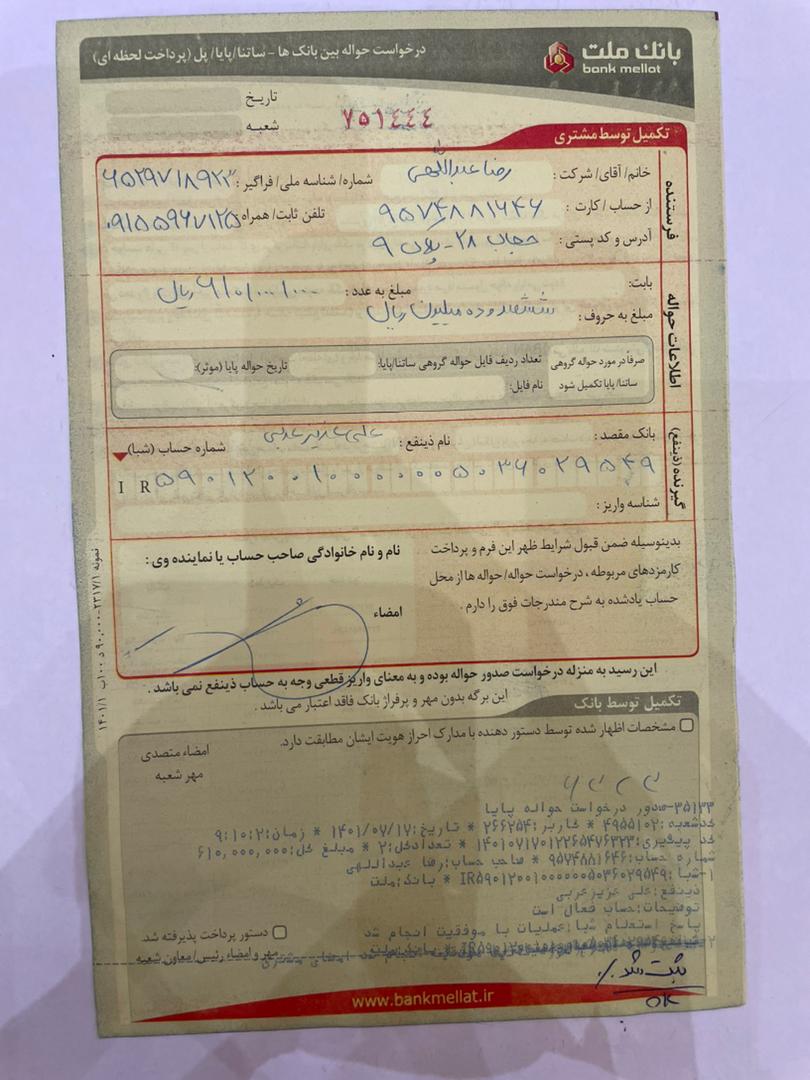 بانک ملت
bank mellat
درخواست حواله بین بانک ها - ساتنا/پایا/ پل (پرداخت لحظه ای)
تاریخ
شعبه
۷۵۱۴۴۴
تکمیل توسط مشتری
فرستنده
خانم/ آقای/ شرکت : رضا عبداللهی شماره/ شناسه ملی/ فراگیر :
از حساب / کارت : ۹۵۷۴۸۸۱۶۴۶ تلفن ثابت/ همراه ۰۹۱۵۵۹۶۷۱۲۵
آدرس و کد پستی : حجاب ۲۸ - پلاک ۹
اطلاعات حواله
بابت: مبلغ به عدد : ۶۱۰/۰۰۰/۰۰۰ ریال
مبلغ به حروف : ششصد و ده میلیون ریال
صرفاً در مورد حواله گروهی ساتنا/ پایا تکمیل شود
تعداد ردیف فایل حواله گروهی ساتنا/پایا: تاریخ حواله پایا (موثر):
نام فایل:
گیرنده (ذینفع)
بانک مقصد : نام ذینفع : شماره حساب (شبا)
IR ۵۹۰۱۲۰۰۱۰۰۰۰۰۰۵۰۳۶۰۲۹۵۴۹
شناسه واریز :
بدینوسیله ضمن قبول شرایط ظهر این فرم و پرداخت
کارمزدهای مربوطه ، درخواست حواله/ حواله ها از محل
حساب یادشده به شرح مندرجات فوق را دارم .
نام و نام خانوادگی صاحب حساب یا نماینده وی :
امضاء
این رسید به منزله درخواست صدور حواله بوده و به معنای واریز قطعی وجه به حساب ذینفع نمی باشد .
این برگه بدون مهر و پرفراژ بانک فاقد اعتبار می باشد .
تکمیل توسط بانک
مشخصات اظهار شده توسط دستور دهنده با مدارک احراز هویت ایشان مطابقت دارد.
امضاء متصدی
مهر شعبه
۳۵۱۳۳-صدور درخواست حواله پایا
کدشعبه:۴۹۵۵۱۰۲ * کاربر:۲۶۶۲۵۴ * تاریخ:۱۴۰۱/۰۷/۱۷ * زمان:۹:۱۰:۲
کد پیگیری:۱۴۰۱۰۷۱۷۰۱۲۲۶۵۴۷۶۳۲۳ * تعدادکل:۲ * مبلغ کل:۶۱۰,۰۰۰,۰۰۰
شماره حساب:۹۵۷۴۸۸۱۶۴۶ * صاحب حساب:رضا عبداللهی
۱-شبا:IR۵۹۰۱۲۰۰۱۰۰۰۰۰۰۵۰۳۶۰۲۹۵۴۹ * بانک:ملت
ذینفع:علی عزیز عربی
توضیحات:حساب فعال است
پاسخ استعلام شبا:عملیات با موفقیت انجام شد
دستور پرداخت پذیرفته شد.
مهر و امضاء رئیس/ معاون شعبه
ثبت شد
www.bankmellat.ir